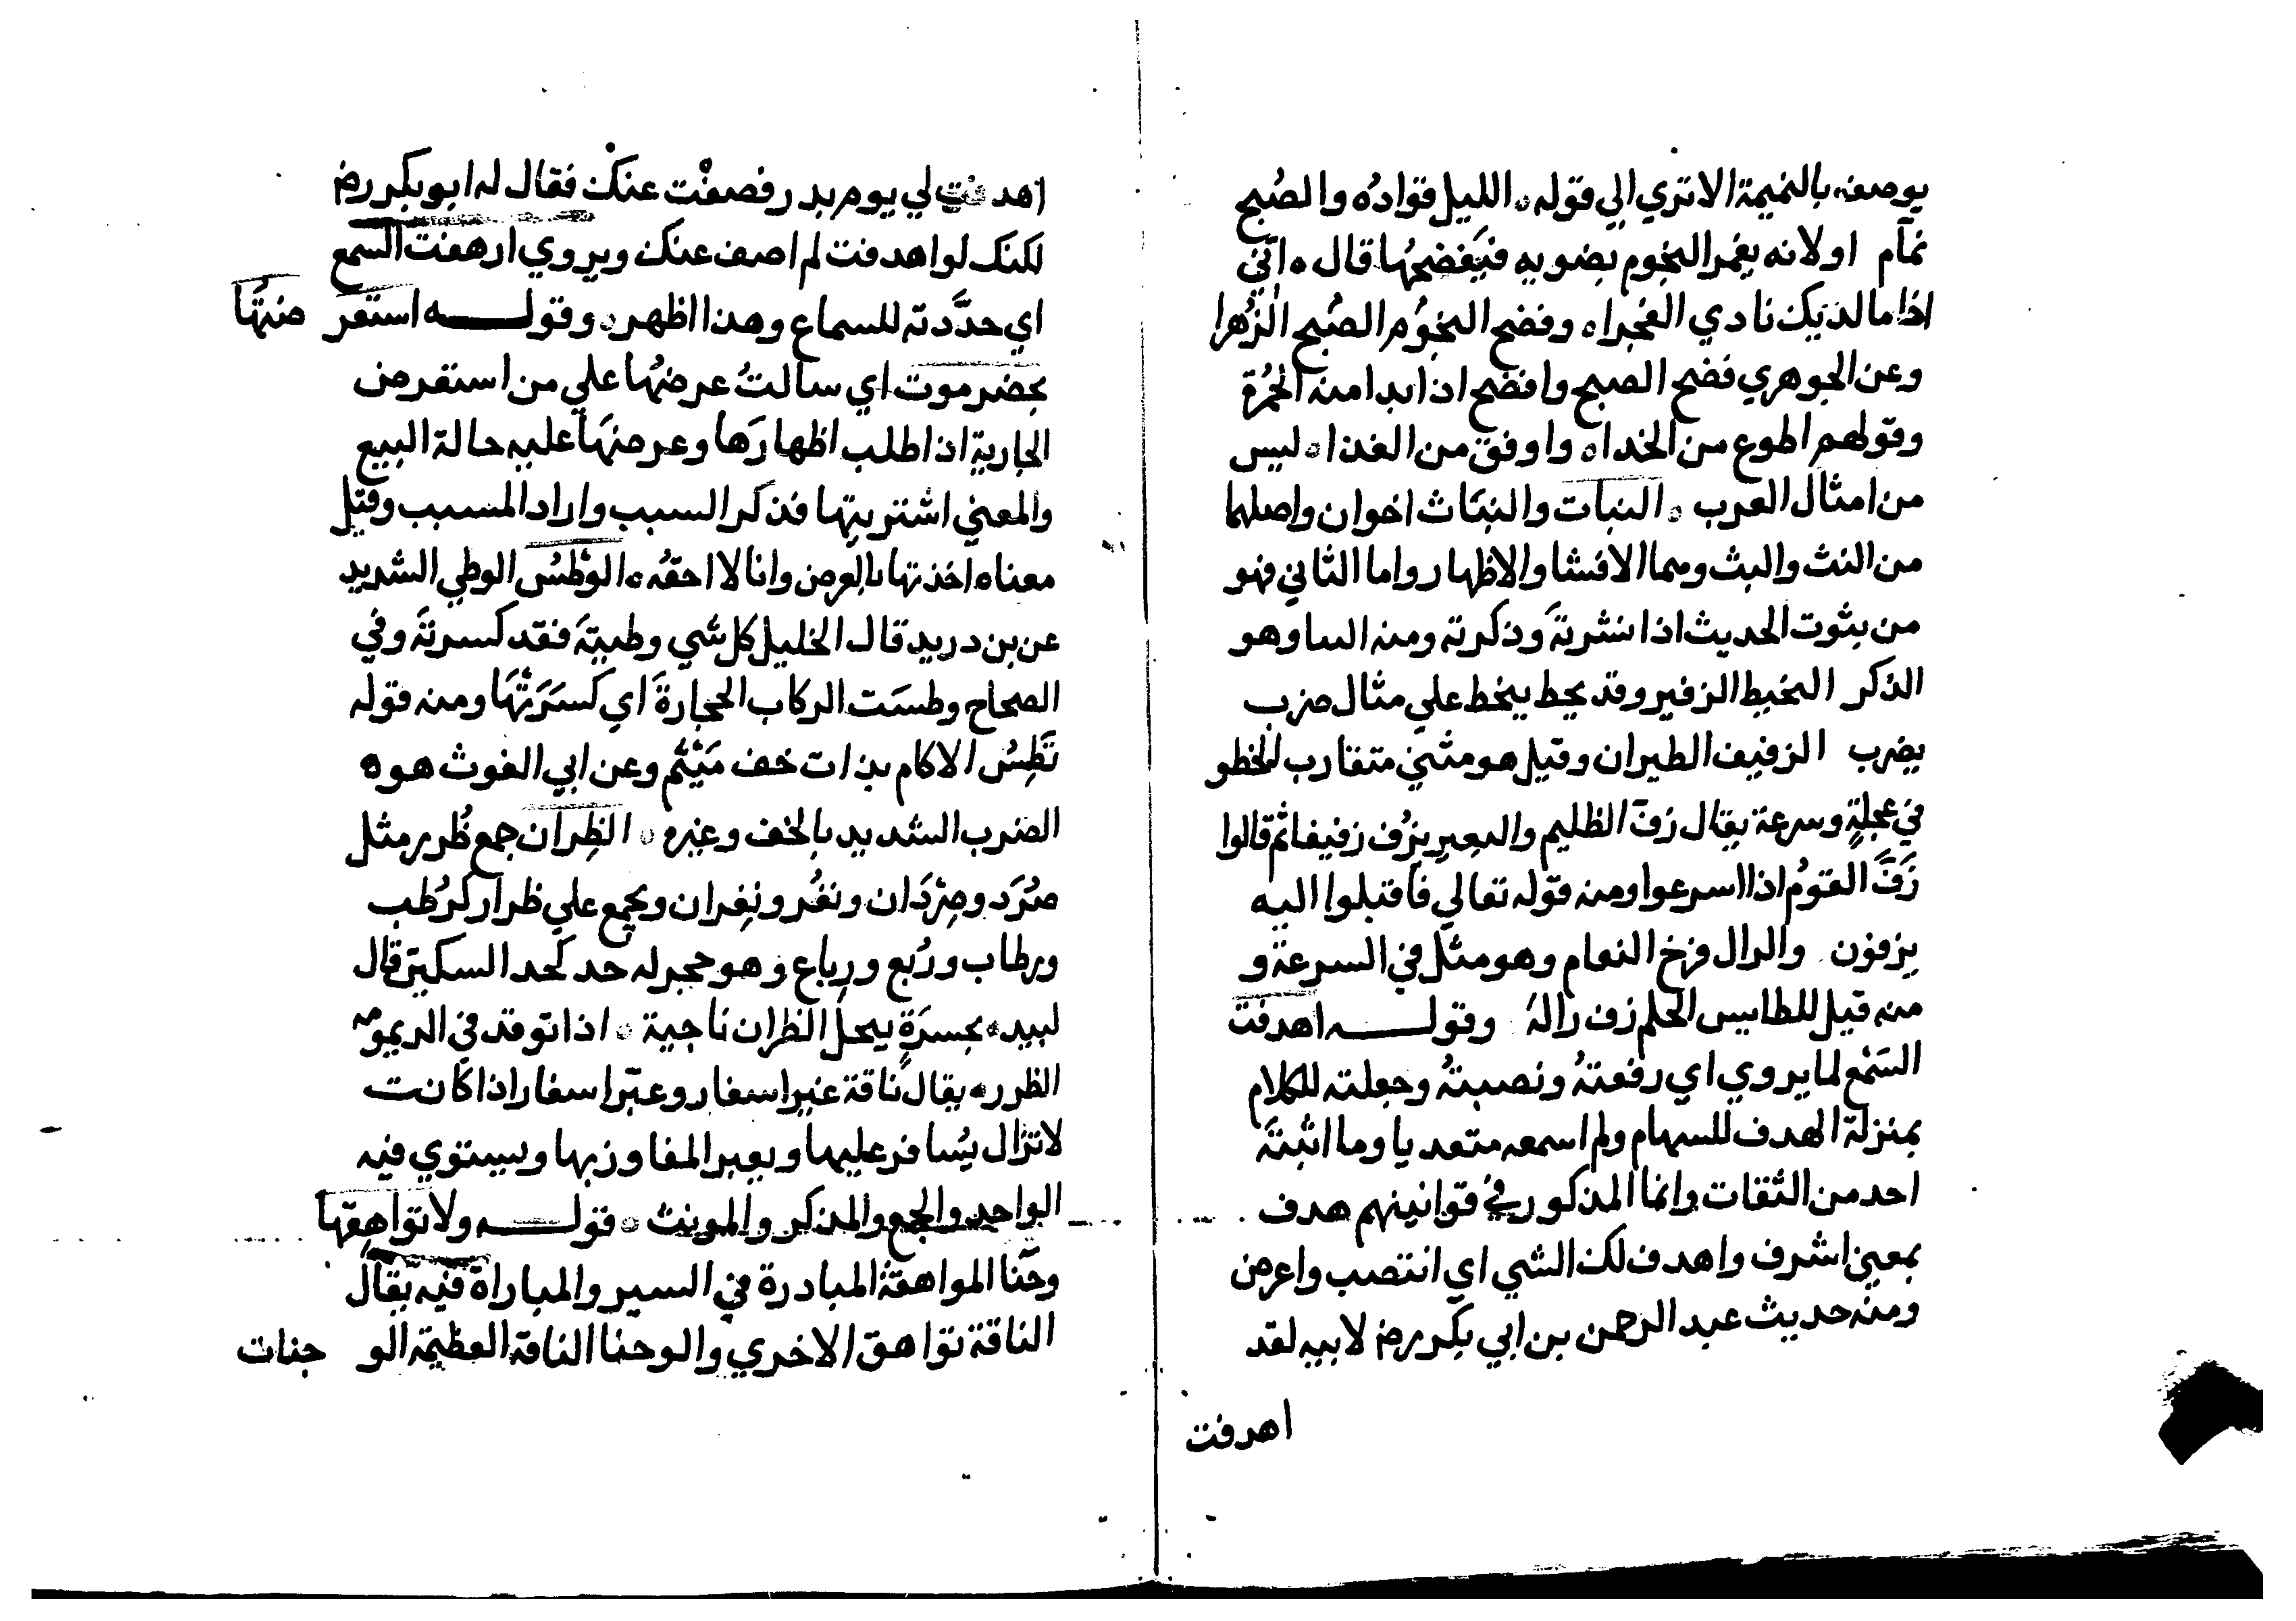 يوصف بالنميمة الا تري الي قوله ه الليل قوادُه والصُبح
نمآم اولانه يغمر النجوم بضويه فيَفضحهُا قال ه اتي
اذا ما الديك نادي الفجراه وفضح النجوُم الصُبح الزُهرا
وعن الجوهري فضح الصبح وافضح اذا بدا منه الحُمرة
وقولهم اطوع من الخداه واوفق من الغذا ه ليس
من امثال العرب ه النبات والنبَاث اخوان واصلهما
من النث والبث وهما الافشا والاظهار واما الثاني فهو
من بثوت الحديث اذا نشرتَه وذكرته ومنه النبا وهو
الذكر النخيط الزفير وقد نحط ينحط علي مثال ضرب
يضرب الزفيف الطيران وقيل هو مشي متقارب الخطو
في عجلةٍ وسرعة يقال زفّ الظليم والبعير يزُف زفيفا ثم قالوا
زَفَّ القومُ اذا اسرعوا ومنه قوله تعالي فاقبلوا اليه
يزفون والرال فرخ النعام وهو مثل في السرعة و
منه قيل للطايس الحلم زف رالهُ وقولــه اهدفت
السَمع لما يروي اي رفعتهُ ونصبتهُ وجعلته للكلام
بمنزلة الهدف للسهام ولم اسمعه متعديا وما اثبتَه
احد من الثقات وانما المذكور في قوانينهم هدف
بمعني اشرف واهدف لك الشي اي انتصب واعرض
ومنه حديث عبد الرحمن بن ابي بكر رض لابيه لقد
اهدفت
اهدفت لي يوم بدر فصفت عنك فقال له ابو بكر رض
لكنك لو اهدفت لم اصف عنك ويروي ارهفت السمع
اي حدَّدته للسماع وهذا اظهر ه وقولــه استعر ضتهَا
بحضرموت اي سالتُ عرضهُا علي من استعرض
الجارية اذا طلب اظهارَها وعرضهَا عليه حالة البيع
والمعني اشتريتها فذكر السبب واراد المسبب وقيل
معناه اخذتها بالعرض وانا لا احقهُ ه الوَطْسُ الوطي الشديد
عن بن دريد قال الخليل كل شي وطيتهَ فقد كسرتهَ وفي
الصحاح وطسَت الركاب الحجارةَ اي كَسَرَتْهَا ومنه قوله
تَطِسُ الاكام بذات خف مَيْثَم وعن ابي الغوث هو ه
الضرب الشديد بالخف وغيره ه الظِران جمع ظُرر مثل
صُرَد وصِرْدَان ونغُر ونِغران ويجمع علي ظرار كرُطب
ورطاب ورُبع ورِباع وهو حجر له حد كحد السكين قال
لبيد ه بجسرَةٍ ينجل الظران ناجية ه اذا توقد في الديمومه
الظرر ه يقال ناقة عبُر اسفار وعبّر اسفار اذا كانت
لا تزال يُسَافر عليها ويعبر المفاوز بها ويستوي فيه
الواحد والجمع والمذكر والمونث ه قولــه ولا تواهِقها
وجَنا المواهقةُ المبادرة في السير والمباراة فيه يقال
الناقة تواهق الاخري والوجنا الناقة العظيمة الو جنات